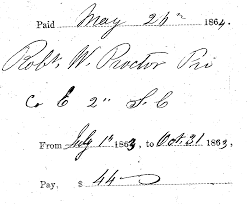 Paid May 26th 1864.
Robt. W. Proctor Pri
Co E 2" S. C
From July 1st 1863, to Oct. 31 1863,
Pay, $ 44